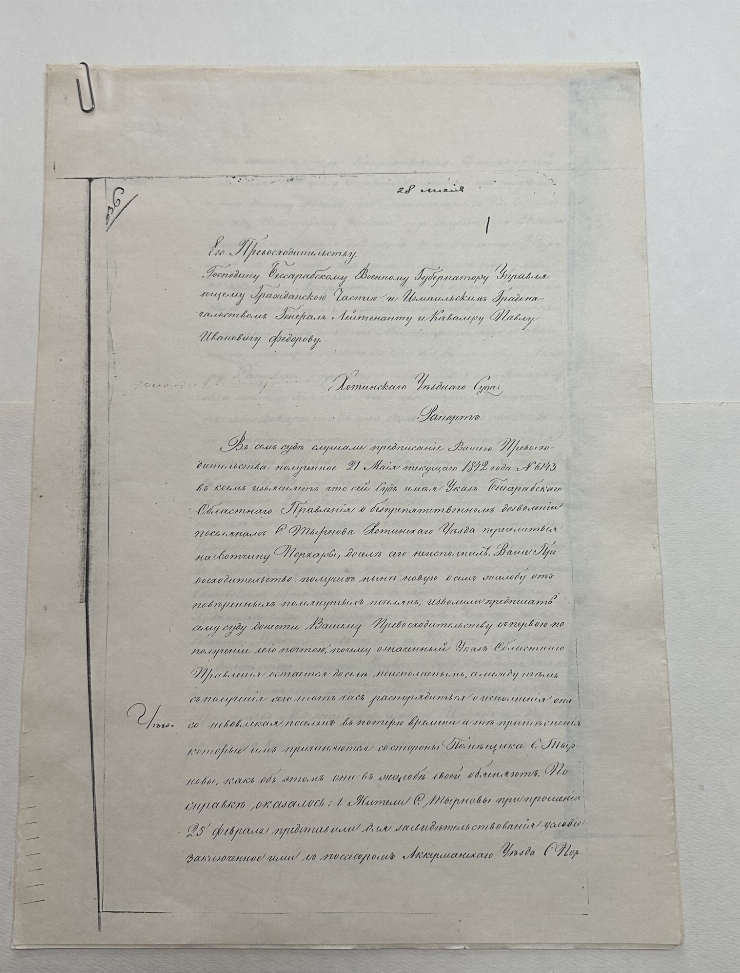 28 маія
1
Его Превосходительству
Господину Бессарабскому Военному Губернатору Управля
ющему Гражданскою Частью и Измаильскимъ Градона
чальствомъ Генералъ Лейтенанту и Кавалеру Павлу
Ивановичу Федорову.
Хотинскаго Уѣзднаго Суда
Рапортъ
Въ семъ судѣ слушали предписаніе Вашего Превосхо
дительства полученное 21 Маія текущаго 1842 года № 6143
въ коемъ изъясняетъ что сей Судъ имѣя Указъ Бесарабскаго
Областнаго Правленія о безпрепятственномъ дозволеніи
поселянамъ С Тырнова Хотинскаго Уѣзда переселиться
на вотчину досель его неисполнилъ. Ваше Пре
восходительство получивъ нынѣ новую о семъ жалобу отъ
повѣренныхъ помянутыхъ поселянъ, изволили предписать
сему суду донести Вашему Превосходительству съ первою по
полученіи сего почтою, почему означенный Указъ Областнаго
Правленія остается досель неисполненымъ, а между тѣмъ
съ полученія сего тотъ часъ распорядиться о исполненіи она
го невовлекая поселянъ въ потерю времени и тѣ притѣсненія
которые имъ причиняются со стороны Помѣщика С. Тыр
новы, какъ объ этомъ они въ жалобѣ своей объясняютъ. По
справкѣ оказалось: 1 Жители С Тырновы при прошеніи
25 февраля представили для засвидѣтельствованія условіе
заключенное ими съ посесоромъ Аккерманскаго Уѣзда С Пор